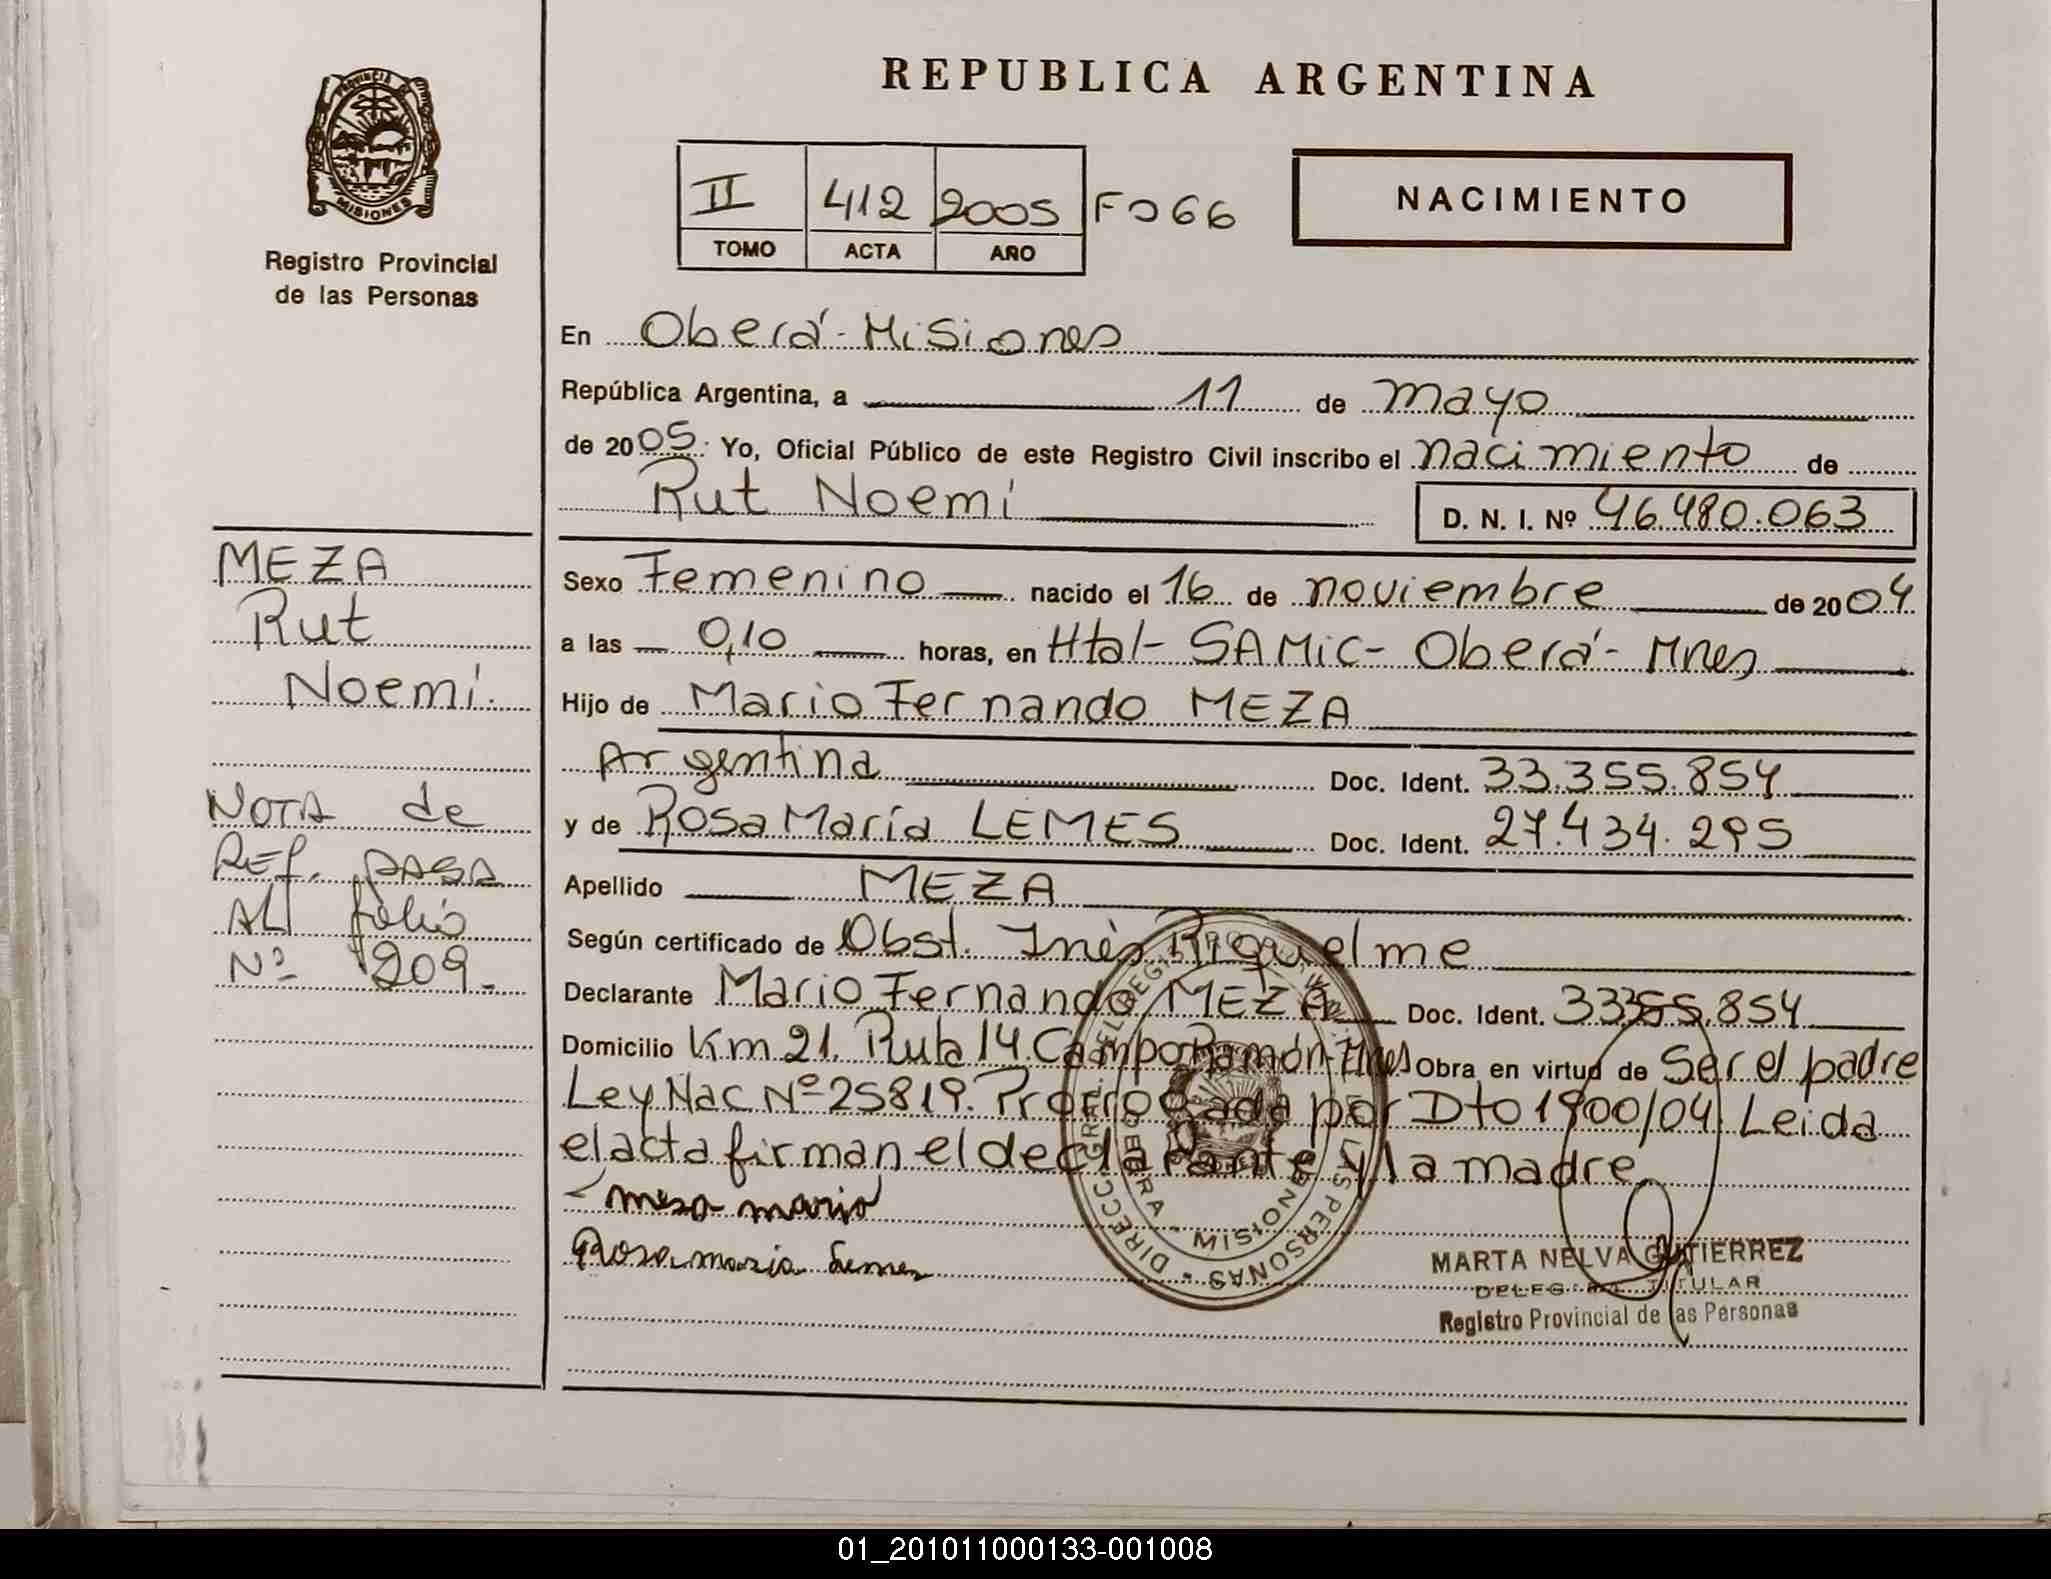 REPUBLICA ARGENTINA
PROVINCIA DE
MISIONES
Registro Provincial
de las Personas
II 412 2005 Fo 66
TOMO ACTA AÑO
NACIMIENTO
En Oberá - Misiones
República Argentina, a 11 de mayo
de 2005. Yo, Oficial Público de este Registro Civil inscribo el nacimiento de
Rut Noemí
D. N. I. Nº 46.480.063
MEZA
Rut
Noemí.
NOTA de
REF. PASA
AL folio
Nº 209.
Sexo Femenino nacido el 16 de noviembre de 2004
a las 0,10 horas, en Htal- SAMIC- Oberá- Mnes
Hijo de Mario Fernando MEZA
Argentina Doc. Ident. 33.355.854
y de Rosa María LEMES Doc. Ident. 27.434.295
Apellido MEZA
Según certificado de Obst. Inés Riquelme
Declarante Mario Fernando MEZA Doc. Ident. 33355.854
Domicilio Km 21. Ruta 14. Campo Ramón- Mnes Obra en virtud de Ser el padre
Ley Nac Nº 25819. Prorrogada por Dto 1900/04. Leida
el acta firman el declarante y la madre.
mesa mario
Rosa maria Lemes
MARTA NELVA GUTIERREZ
DELEGADA TITULAR
Registro Provincial de las Personas
01_201011000133-001008